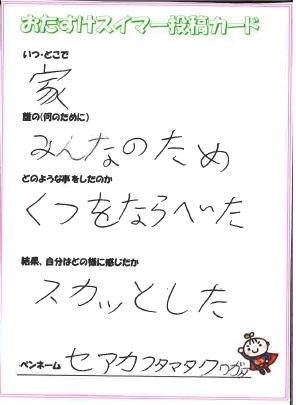 おたすけスイマー投稿カード
いつ・どこで
家
誰の(何のために)
みんなのため
どのような事をしたのか
くつをならべた
結果、自分はどの様に感じたか
スカッとした
ペンネーム セアカフタマタクワガタ